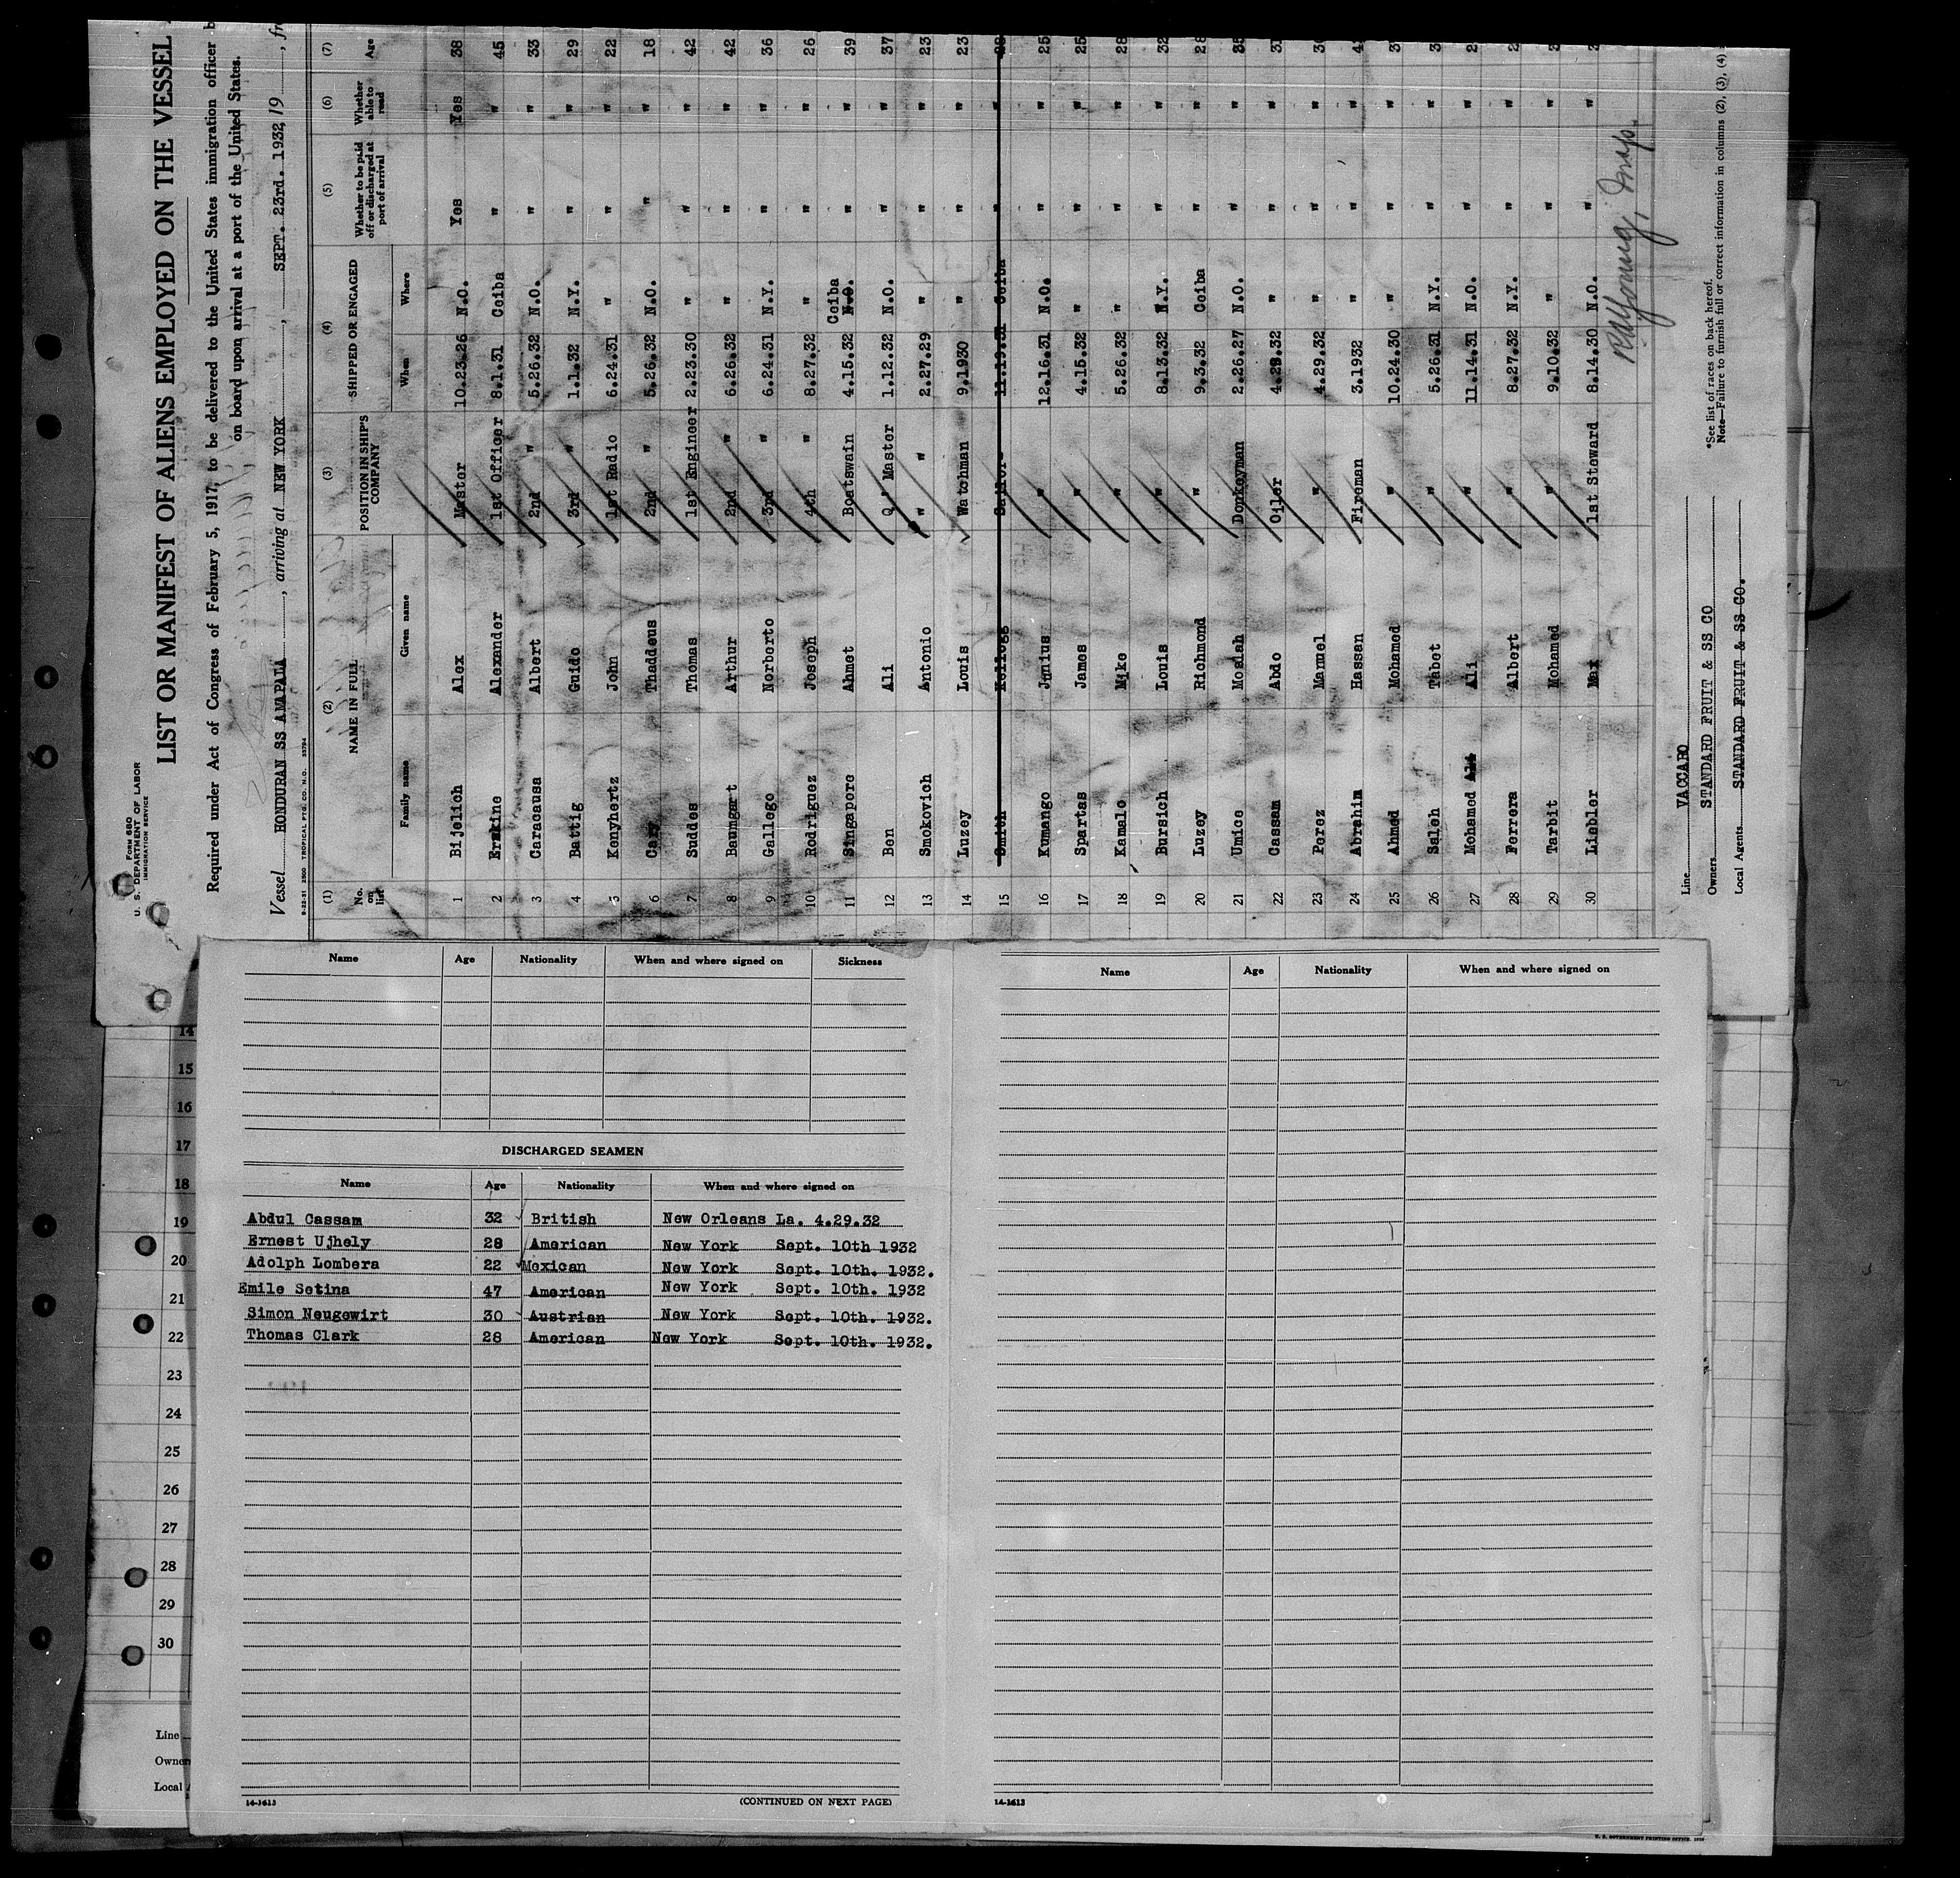 Form 680
U. S. DEPARTMENT OF LABOR
IMMIGRATION SERVICE
LIST OR MANIFEST OF ALIENS EMPLOYED ON THE VESSEL
Required under Act of Congress of February 5, 1917, to be delivered to the United States immigration officer b
on board upon arrival at a port of the United States.
Vessel HONDURAN SS AMAPALA, arriving at NEW YORK, SEPT. 23rd. 1932, 19, fr
9-22-31 2500 TROPICAL PTG. CO. N.O. 33794
(1) (2) (3) (4) (5) (6) (7)
No. on list NAME IN FULL POSITION IN SHIP'S COMPANY SHIPPED OR ENGAGED Whether to be paid off or discharged at port of arrival Whether able to read Age
Family name Given name When Where
1 Bijelich Alex Master 10.23.26 N.O. Yes Yes 38
2 Erskine Alexander 1st Officer 8.1.31 Ceiba " " 45
3 Caracausa Albert 2nd " 5.26.32 N.O. " " 33
4 Battig Guido 3rd " 1.1.32 N.Y. " " 29
5 Kenyhertz John 1st Radio 6.24.31 " " " 22
6 Cary Thaddeus 2nd " 5.26.32 N.O. " " 18
7 Suddes Thomas 1st Engineer 2.23.30 " " " 42
8 Baumgart Arthur 2nd " 6.26.32 " " " 42
9 Gallego Norberto 3rd " 6.24.31 N.Y. " " 36
10 Rodriguez Joseph 4th " 8.27.32 " " " 26
11 Singapore Ahmet Boatswain 4.15.32 Ceiba N.O. " " 39
12 Ben Ali Q' Master 1.12.32 N.O. " " 37
13 Smokovich Antonio " " 2.27.29 " " " 23
14 Luzey Louis Watchman 9.1930 " " " 23
15 Smith Kellogg Sailor 11.19.31 Ceiba " " 28
16 Kumango Junius " 12.16.31 N.O. " " 25
17 Spartas James " 4.15.32 " " " 25
18 Kamalo Mike " 5.26.32 " " " 28
19 Bursich Louis " 8.13.32 N.Y. " " 32
20 Luzey Richmond " 9.3.32 Ceiba " " 28
21 Umice Mosiah Donkeyman 2.26.27 N.O. " " 35
22 Cassam Abdo Oiler 4.29.32 " " "
23 Perez Manuel " 4.29.32 " " "
24 Abrahim Hassan Fireman 3.1932 " " "
25 Ahmed Mohamed " 10.24.30 " " "
26 Saleh Tabet " 5.26.31 N.Y. " "
27 Mohamed Ali Ali " 11.14.31 N.O. " "
28 Ferrera Albert " 8.27.32 N.Y. " "
29 Tarbit Mohamed " 9.10.32 " " "
30 Liebler Max 1st Steward 8.14.30 N.O. " "
Line VACCARO
Owners STANDARD FRUIT & SS CO
Local Agents STANDARD FRUIT & SS CO.
*See list of races on back hereof.
Note—Failure to turnish full or correct information in columns (2), (3), (4)
Name Age Nationality When and where signed on Sickness
DISCHARGED SEAMEN
Name Age Nationality When and where signed on
Abdul Cassam 32 British New Orleans La. 4.29.32
Ernest Ujhely 28 American New York Sept. 10th 1932
Adolph Lombera 22 Mexican New York Sept. 10th. 1932.
Emile Setina 47 American New York Sept. 10th. 1932
Simon Neugewirt 30 Austrian New York Sept. 10th. 1932.
Thomas Clark 28 American New York Sept. 10th. 1932.
14-1613 (CONTINUED ON NEXT PAGE)
Name Age Nationality When and where signed on
14-1613
14
15
16
17
18
19
20
21
22
23
24
25
26
27
28
29
30
Line
Owner
Local
U. S. GOVERNMENT PRINTING OFFICE